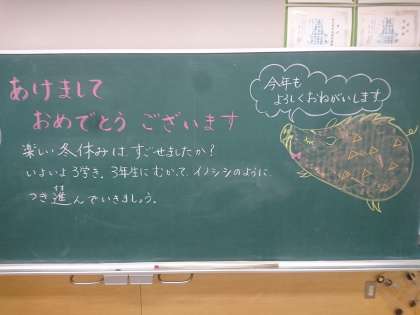 あけまして
おめでとう ございます
楽しい冬休みはすごせましたか?
いよいよ3学き。3年生にむかって、イノシシのように、
つき進んでいきましょう。
今年も
よろしくおねがいします